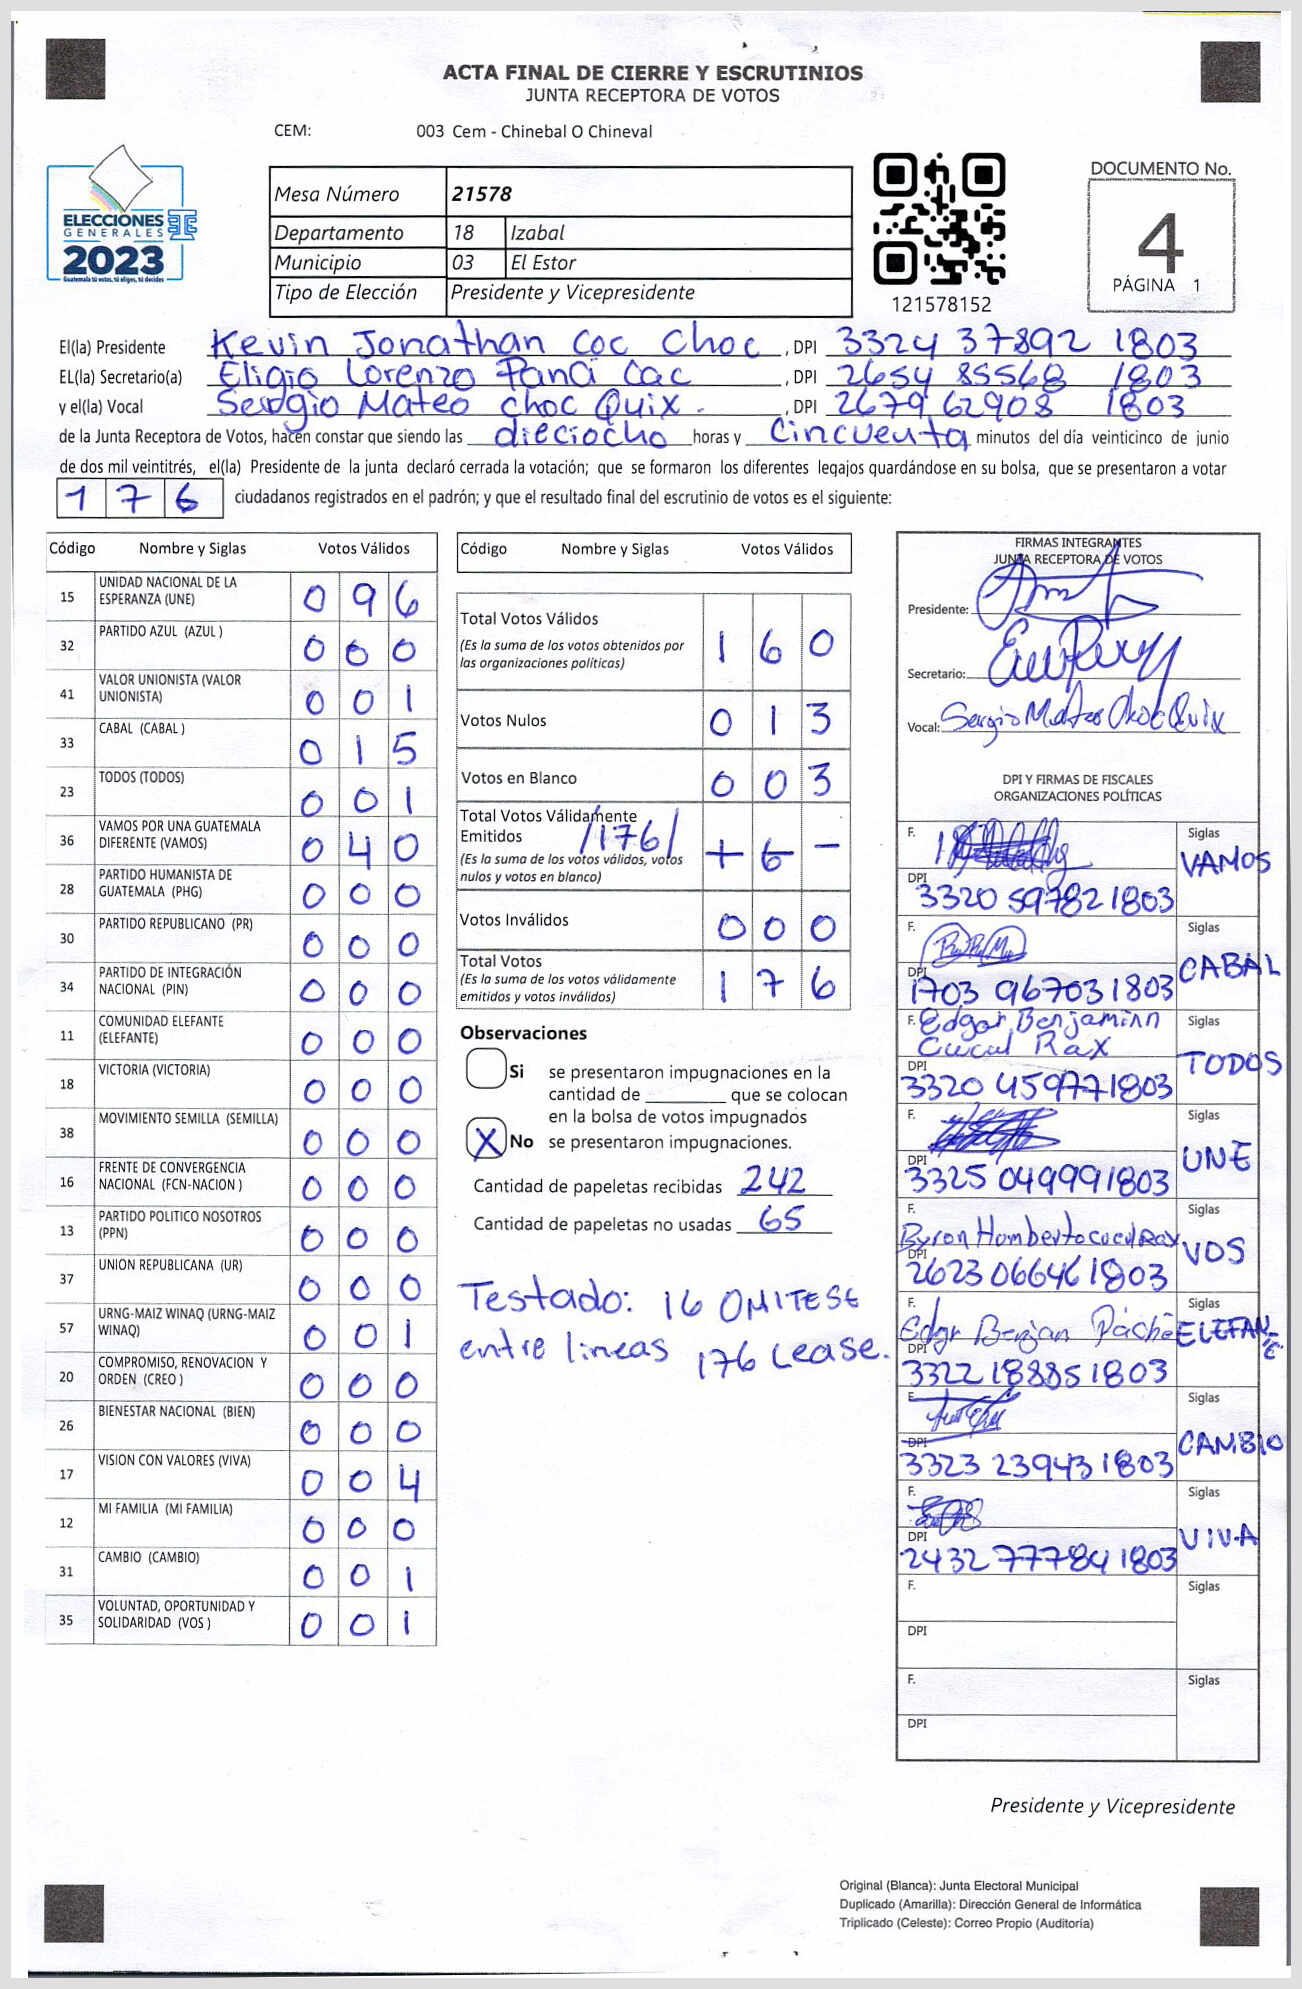 ACTA FINAL DE CIERRE Y ESCRUTINIOS
JUNTA RECEPTORA DE VOTOS
CEM: 003 Cem - Chinebal O Chineval
ELECCIONES
GENERALES
2023
Guatemala tú votas, tú eliges, tú decides
Mesa Número 21578
Departamento 18 Izabal
Municipio 03 El Estor
Tipo de Elección Presidente y Vicepresidente
121578152
DOCUMENTO No.
4
PÁGINA 1
El(la) Presidente Kevin Jonathan Coc Choc, DPI 3324 37892 1803
EL(la) Secretario(a) Eligio Lorenzo Panci Cac, DPI 2654 85568 1803
y el(la) Vocal Sergio Mateo Choc Quix., DPI 2679 62908 1803
de la Junta Receptora de Votos, hacen constar que siendo las dieciocho horas y cincuenta minutos del día veinticinco de junio
de dos mil veintitrés, el(la) Presidente de la junta declaró cerrada la votación; que se formaron los diferentes legajos guardándose en su bolsa, que se presentaron a votar
176 ciudadanos registrados en el padrón; y que el resultado final del escrutinio de votos es el siguiente:
Código Nombre y Siglas Votos Válidos
15 UNIDAD NACIONAL DE LA ESPERANZA (UNE) 0 9 6
32 PARTIDO AZUL (AZUL ) 0 0 0
41 VALOR UNIONISTA (VALOR UNIONISTA) 0 0 1
33 CABAL (CABAL ) 0 1 5
23 TODOS (TODOS) 0 0 1
36 VAMOS POR UNA GUATEMALA DIFERENTE (VAMOS) 0 4 0
28 PARTIDO HUMANISTA DE GUATEMALA (PHG) 0 0 0
30 PARTIDO REPUBLICANO (PR) 0 0 0
34 PARTIDO DE INTEGRACIÓN NACIONAL (PIN) 0 0 0
11 COMUNIDAD ELEFANTE (ELEFANTE) 0 0 0
18 VICTORIA (VICTORIA) 0 0 0
38 MOVIMIENTO SEMILLA (SEMILLA) 0 0 0
16 FRENTE DE CONVERGENCIA NACIONAL (FCN-NACION ) 0 0 0
13 PARTIDO POLITICO NOSOTROS (PPN) 0 0 0
37 UNION REPUBLICANA (UR) 0 0 0
57 URNG-MAIZ WINAQ (URNG-MAIZ WINAQ) 0 0 1
20 COMPROMISO, RENOVACION Y ORDEN (CREO ) 0 0 0
26 BIENESTAR NACIONAL (BIEN) 0 0 0
17 VISION CON VALORES (VIVA) 0 0 4
12 MI FAMILIA (MI FAMILIA) 0 0 0
31 CAMBIO (CAMBIO) 0 0 1
35 VOLUNTAD, OPORTUNIDAD Y SOLIDARIDAD (VOS ) 0 0 1
Código Nombre y Siglas Votos Válidos
Total Votos Válidos 1 6 0
(Es la suma de los votos obtenidos por
las organizaciones políticas)
Votos Nulos 0 1 3
Votos en Blanco 0 0 3
Total Votos Válidamente
Emitidos /176/
(Es la suma de los votos válidos, votos
nulos y votos en blanco)
Votos Inválidos 0 0 0
Total Votos 1 7 6
(Es la suma de los votos válidamente
emitidos y votos inválidos)
Observaciones
Si se presentaron impugnaciones en la
cantidad de ________ que se colocan
en la bolsa de votos impugnados
X No se presentaron impugnaciones.
Cantidad de papeletas recibidas 242
Cantidad de papeletas no usadas 65
Testado: 16 OMITESE
entre lineas 176 Lease.
FIRMAS INTEGRANTES
JUNTA RECEPTORA DE VOTOS
Presidente:
Secretario:
Vocal: Sergio Mateo Choc Quix
DPI Y FIRMAS DE FISCALES
ORGANIZACIONES POLÍTICAS
F. Siglas VAMOS
DPI 3320 59782 1803
F. Siglas CABAL
DPI 1703 96703 1803
F. Edgar Benjaminn Cucul Rax Siglas TODOS
DPI 3320 45977 1803
F. Siglas UNE
DPI 3325 04999 1803
F. Byron Humberto Cucul Rax Siglas VOS
DPI 2623 06646 1803
F. Siglas ELEFANTE
DPI 3322 18885 1803
F. Siglas CAMBIO
DPI 3323 23943 1803
F. Siglas VIVA
DPI 2432 77784 1803
F. Siglas
DPI
F. Siglas
DPI
Presidente y Vicepresidente
Original (Blanca): Junta Electoral Municipal
Duplicado (Amarilla): Dirección General de Informática
Triplicado (Celeste): Correo Propio (Auditoria)